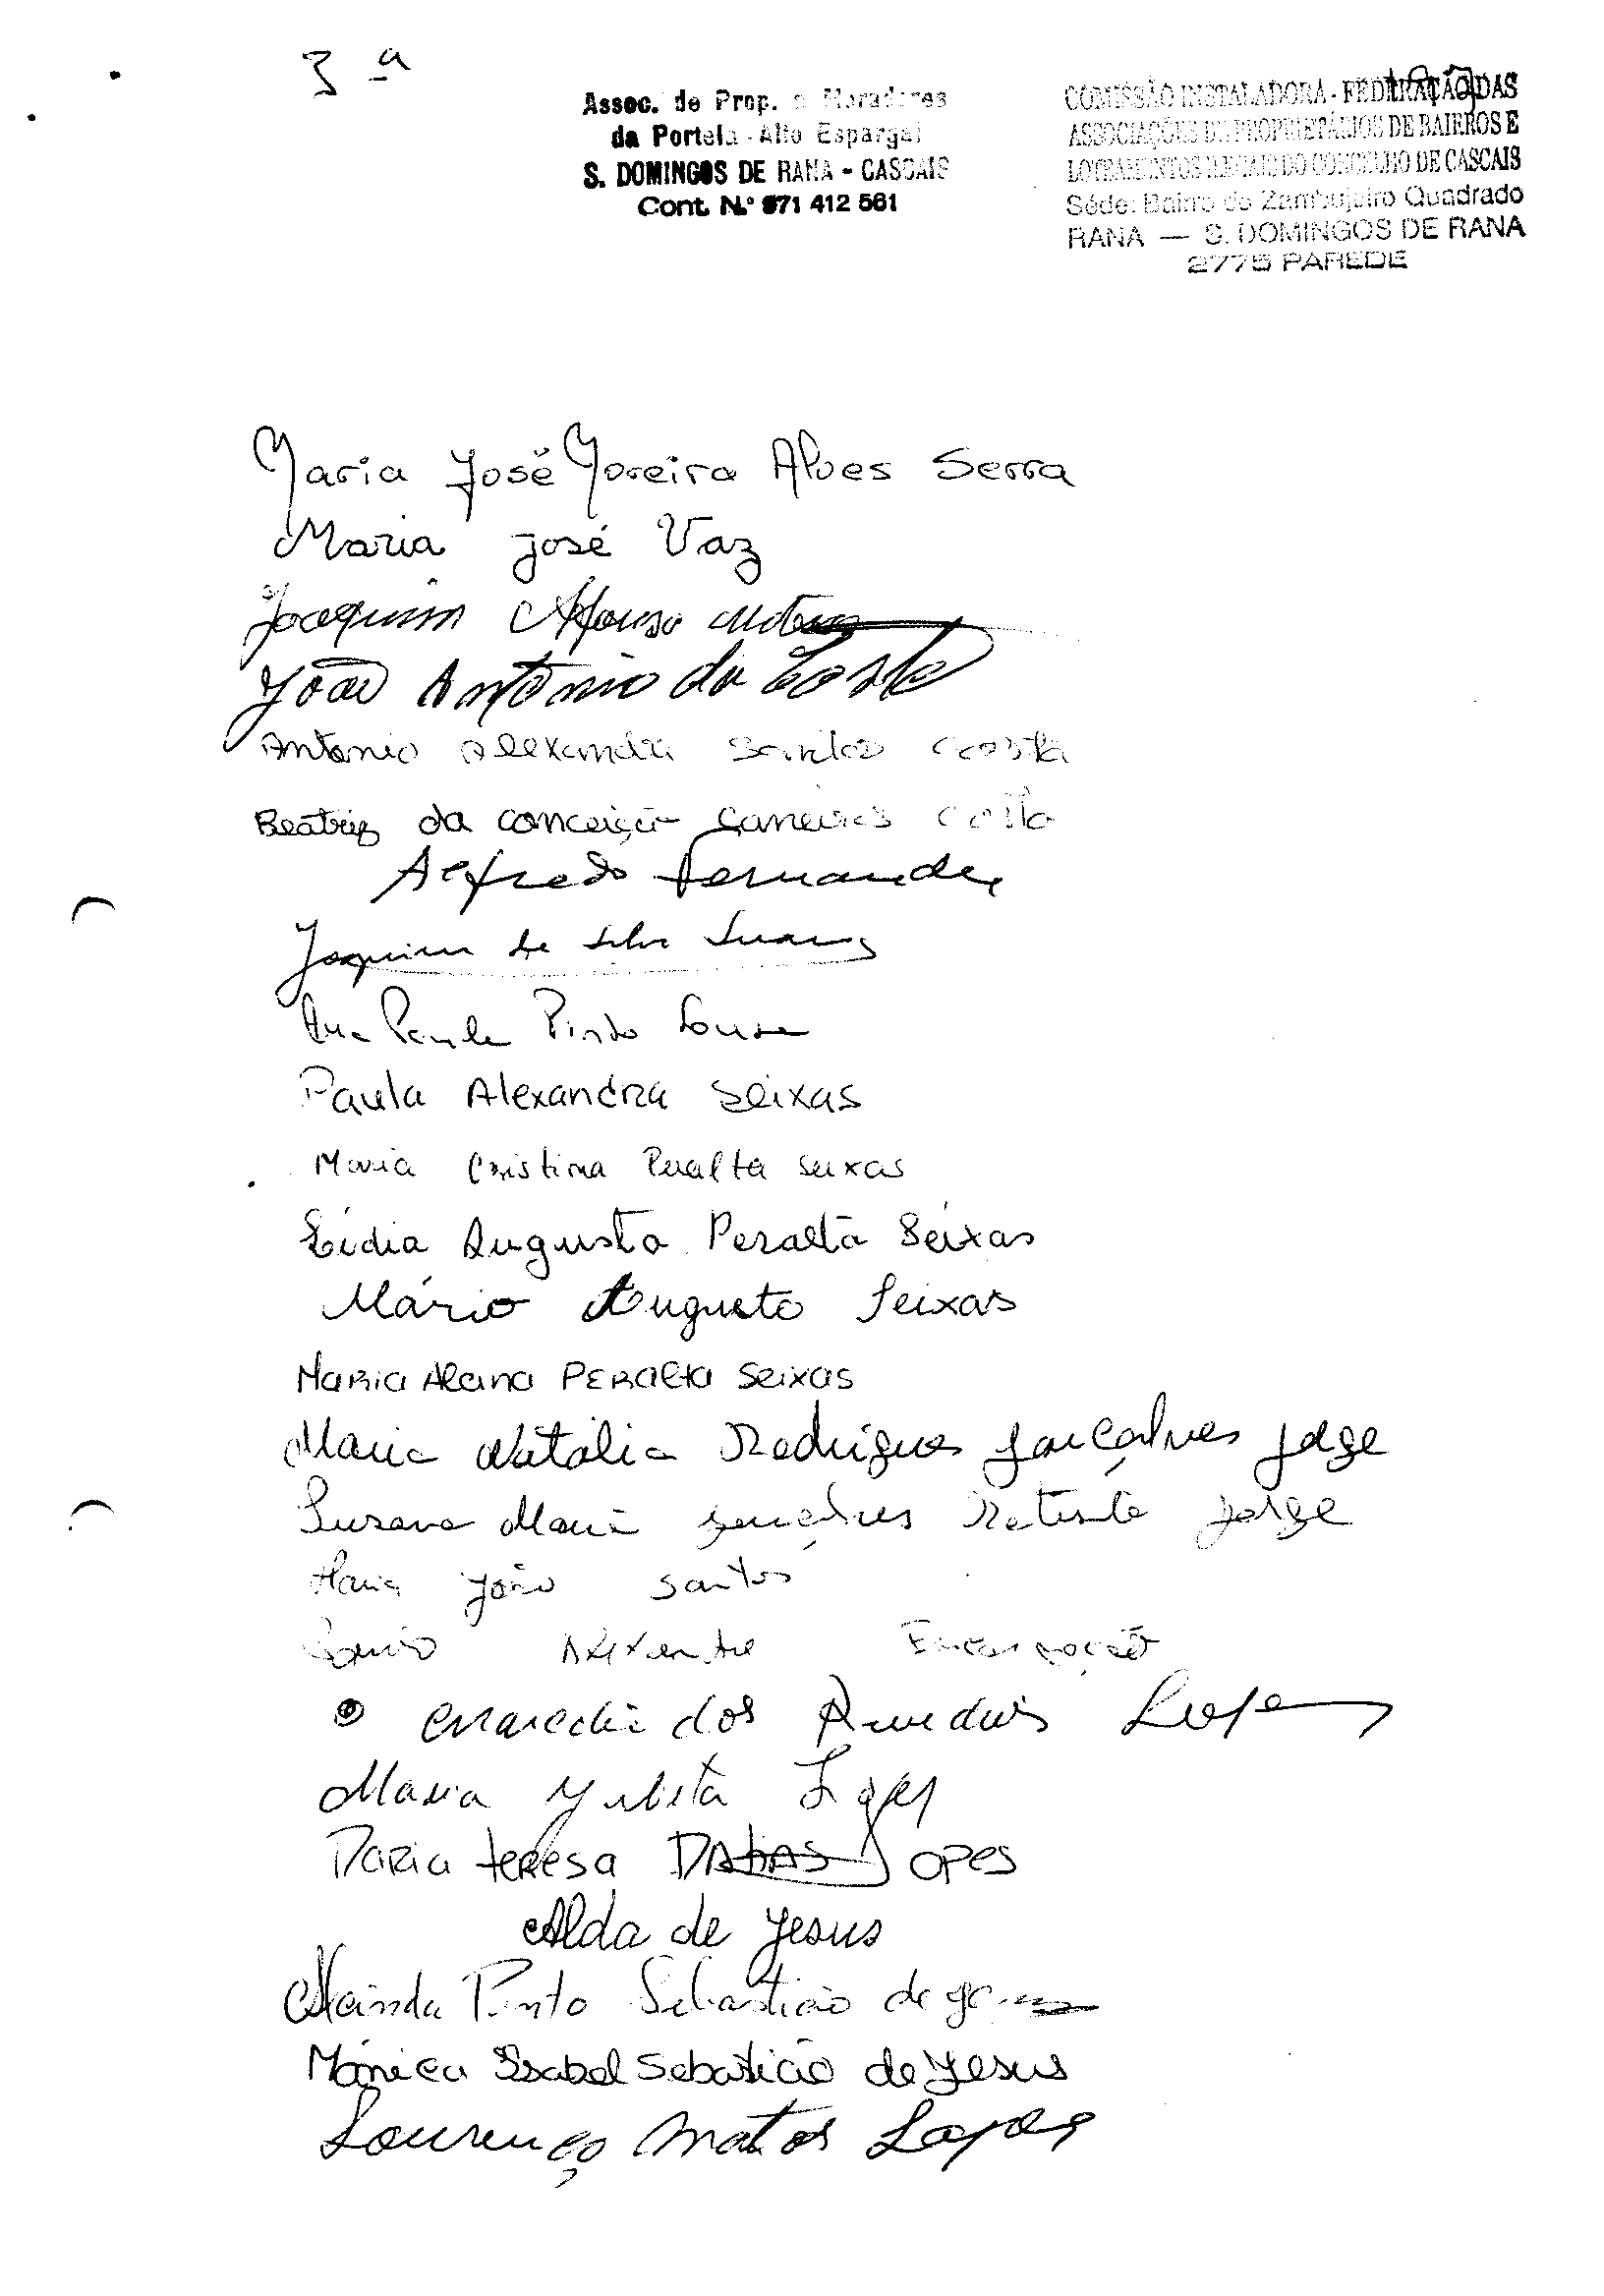 3ª
Assoc. de Prop. e Moradores
da Portela - Alto Espargal
S. DOMINGOS DE RANA - CASCAIS
Cont. N.º 971 412 561
COMISSÃO INSTALADORA - FEDERAÇÃO DAS
ASSOCIAÇÕES DE PROPRIETÁRIOS DE BAIRROS E
LOTEAMENTOS ILEGAIS DO CONCELHO DE CASCAIS
Séde: Bairro do Zambujeiro Quadrado
RANA — S. DOMINGOS DE RANA
2775 PAREDE
Maria José Moreira Alves Serra
Maria José Vaz
Joaquim Afonso
João António da Costa
Antonio Alexandre Santos Costa
Beatriz da Conceição Caneiras Costa
Alfredo Fernandes
Joaquim da Silva
Ana Paula Pinto Sousa
Paula Alexandra Seixas
Maria Cristina Peralta Seixas
Lídia Augusta Peralta Seixas
Mário Augusto Seixas
Maria Alcina Peralta Seixas
Maria Natália Rodrigues Gonçalves Jorge
Susana Maria Gonçalves Jorge
Maria João Santos
Alexandre Encarnação
dos Lopes
Maria Julieta Lopes
Maria Teresa Lopes
Alda de Jesus
Alcinda Pinto Sebastião de Jesus
Mónica Isabel Sebastião de Jesus
Lourenço Matos Lopes